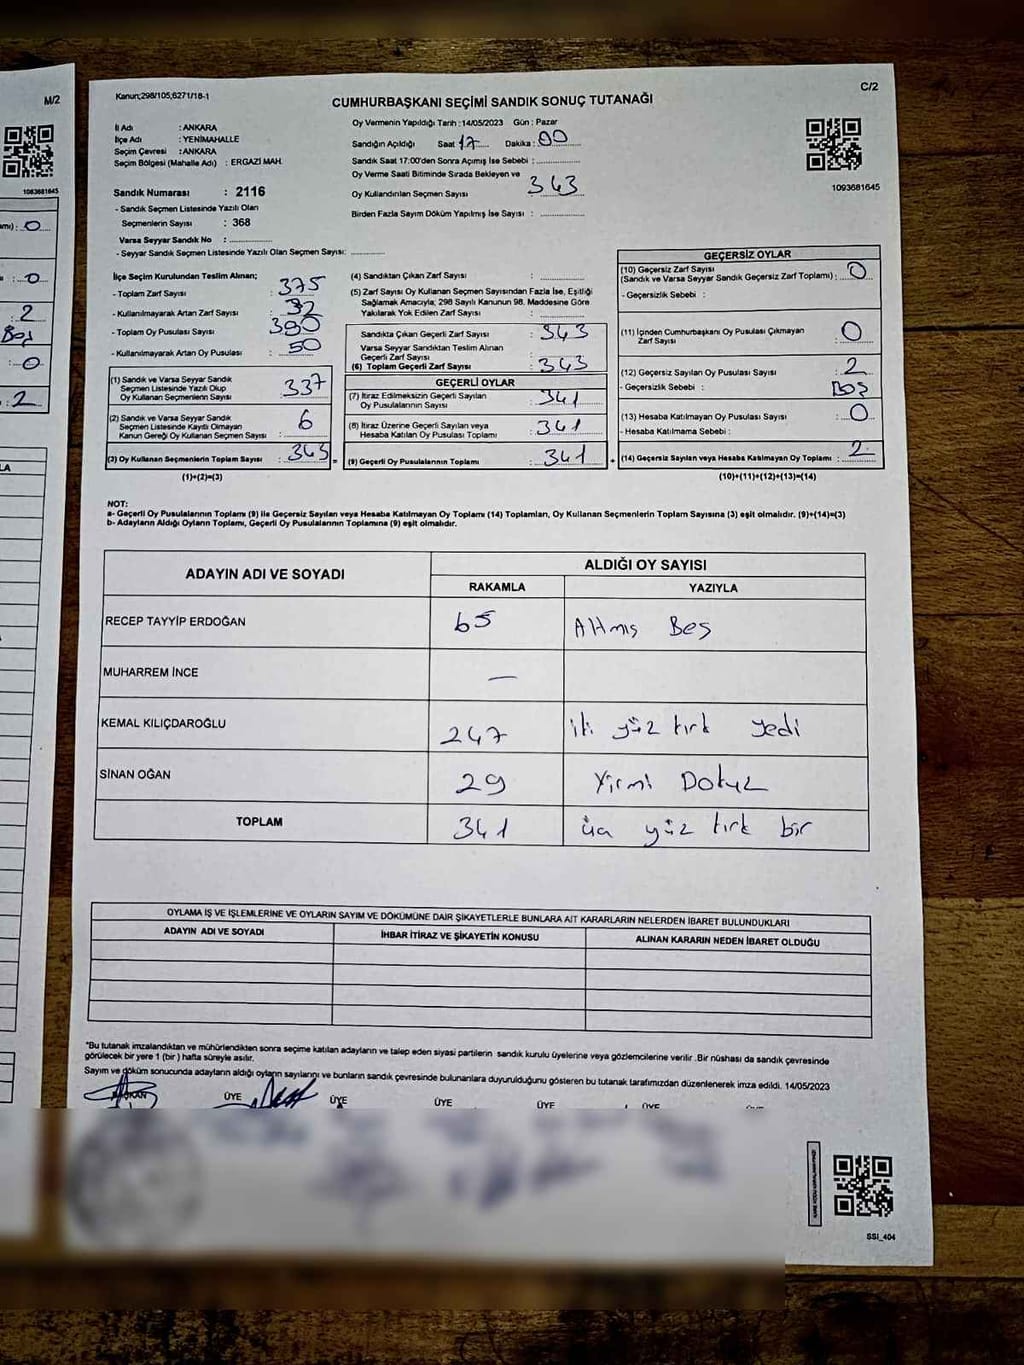 M/2
1083681645
mı) : 0
: 0
2
Boş
0
2
LA
C/2
Kanun;298/105;6271/18-1
CUMHURBAŞKANI SEÇİMİ SANDIK SONUÇ TUTANAĞI
1093681645
İl Adı : ANKARA
İlçe Adı : YENİMAHALLE
Seçim Çevresi : ANKARA
Seçim Bölgesi (Mahalle Adı) : ERGAZİ MAH.
Sandık Numarası : 2116
- Sandık Seçmen Listesinde Yazılı Olan
Seçmenlerin Sayısı : 368
Varsa Seyyar Sandık No :
- Seyyar Sandık Seçmen Listesinde Yazılı Olan Seçmen Sayısı:
Oy Vermenin Yapıldığı Tarih :14/05/2023 Gün : Pazar
Sandığın Açıldığı Saat : 17 Dakika : 00
Sandık Saat 17:00'den Sonra Açılmış İse Sebebi :
Oy Verme Saati Bitiminde Sırada Bekleyen ve
Oy Kullandırılan Seçmen Sayısı : 343
Birden Fazla Sayım Döküm Yapılmış İse Sayısı :
İlçe Seçim Kurulundan Teslim Alınan;
- Toplam Zarf Sayısı : 375
- Kullanılmayarak Artan Zarf Sayısı : 32
- Toplam Oy Pusulası Sayısı : 390
- Kullanılmayarak Artan Oy Pusulası : 50
(1) Sandık ve Varsa Seyyar Sandık
Seçmen Listesinde Yazılı Olup
Oy Kullanan Seçmenlerin Sayısı : 337
(2) Sandık ve Varsa Seyyar Sandık
Seçmen Listesinde Kayıtlı Olmayan
Kanun Gereği Oy Kullanan Seçmen Sayısı : 6
(3) Oy Kullanan Seçmenlerin Toplam Sayısı : 343 =
(1)+(2)=(3)
(4) Sandıktan Çıkan Zarf Sayısı :
(5) Zarf Sayısı Oy Kullanan Seçmen Sayısından Fazla İse, Eşitliği
Sağlamak Amacıyla; 298 Sayılı Kanunun 98. Maddesine Göre
Yakılarak Yok Edilen Zarf Sayısı :
Sandıkta Çıkan Geçerli Zarf Sayısı : 343
Varsa Seyyar Sandıktan Teslim Alınan
Geçerli Zarf Sayısı :
(6) Toplam Geçerli Zarf Sayısı : 343
GEÇERLİ OYLAR
(7) İtiraz Edilmeksizin Geçerli Sayılan
Oy Pusulalarının Sayısı : 341
(8) İtiraz Üzerine Geçerli Sayılan veya
Hesaba Katılan Oy Pusulası Toplamı : 341
(9) Geçerli Oy Pusulalarının Toplamı : 341 +
GEÇERSİZ OYLAR
(10) Geçersiz Zarf Sayısı
(Sandık ve Varsa Seyyar Sandık Geçersiz Zarf Toplamı) : 0
- Geçersizlik Sebebi :
(11) İçinden Cumhurbaşkanı Oy Pusulası Çıkmayan
Zarf Sayısı : 0
(12) Geçersiz Sayılan Oy Pusulası Sayısı : 2
- Geçersizlik Sebebi : Boş
(13) Hesaba Katılmayan Oy Pusulası Sayısı : 0
- Hesaba Katılmama Sebebi :
(14) Geçersiz Sayılan veya Hesaba Katılmayan Oy Toplamı : 2
(10)+(11)+(12)+(13)=(14)
NOT:
a- Geçerli Oy Pusulalarının Toplamı (9) ile Geçersiz Sayılan veya Hesaba Katılmayan Oy Toplamı (14) Toplamları, Oy Kullanan Seçmenlerin Toplam Sayısına (3) eşit olmalıdır. (9)+(14)=(3)
b- Adayların Aldığı Oyların Toplamı, Geçerli Oy Pusulalarının Toplamına (9) eşit olmalıdır.
ADAYIN ADI VE SOYADI
ALDIĞI OY SAYISI
RAKAMLA YAZIYLA
RECEP TAYYİP ERDOĞAN 65 Altmış Beş
MUHARREM İNCE —
KEMAL KILIÇDAROĞLU 247 iki yüz kırk yedi
SİNAN OĞAN 29 Yirmi Dokuz
TOPLAM 341 üç yüz kırk bir
OYLAMA İŞ VE İŞLEMLERİNE VE OYLARIN SAYIM VE DÖKÜMÜNE DAİR ŞİKAYETLERLE BUNLARA AİT KARARLARIN NELERDEN İBARET BULUNDUKLARI
ADAYIN ADI VE SOYADI İHBAR İTİRAZ VE ŞİKAYETİN KONUSU ALINAN KARARIN NEDEN İBARET OLDUĞU
*Bu tutanak imzalandıktan ve mühürlendikten sonra seçime katılan adayların ve talep eden siyasi partilerin sandık kurulu üyelerine veya gözlemcilerine verilir .Bir nüshası da sandık çevresinde
görülecek bir yere 1 (bir ) hafta süreyle asılır.
Sayım ve döküm sonucunda adayların aldığı oyların sayılarını ve bunların sandık çevresinde bulunanlara duyurulduğunu gösteren bu tutanak tarafımızdan düzenlenerek imza edildi. 14/05/2023
BAŞKAN ÜYE ÜYE ÜYE ÜYE ÜYE
SSİ_404